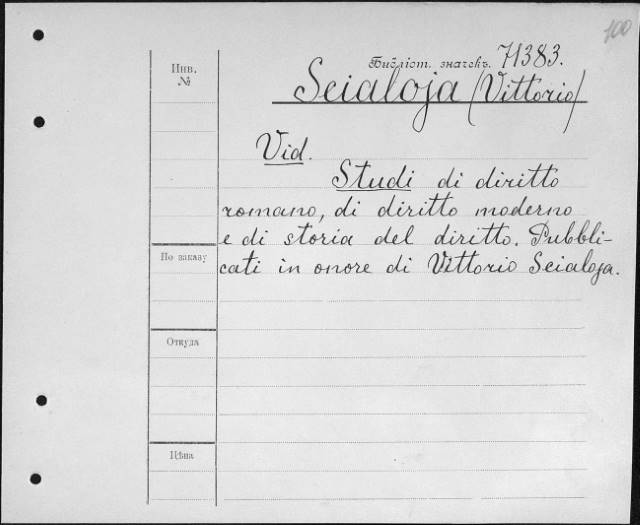 100
Библіот. значекъ. 71383.
Инв.
№
Scialoja (Vittorio)
Vid.
Studi di diritto
romano, di diritto moderno
e di storia del diritto. Pubbli-
По заказу
cati in onore di Vittorio Scialoja.
Откуда
Цѣна